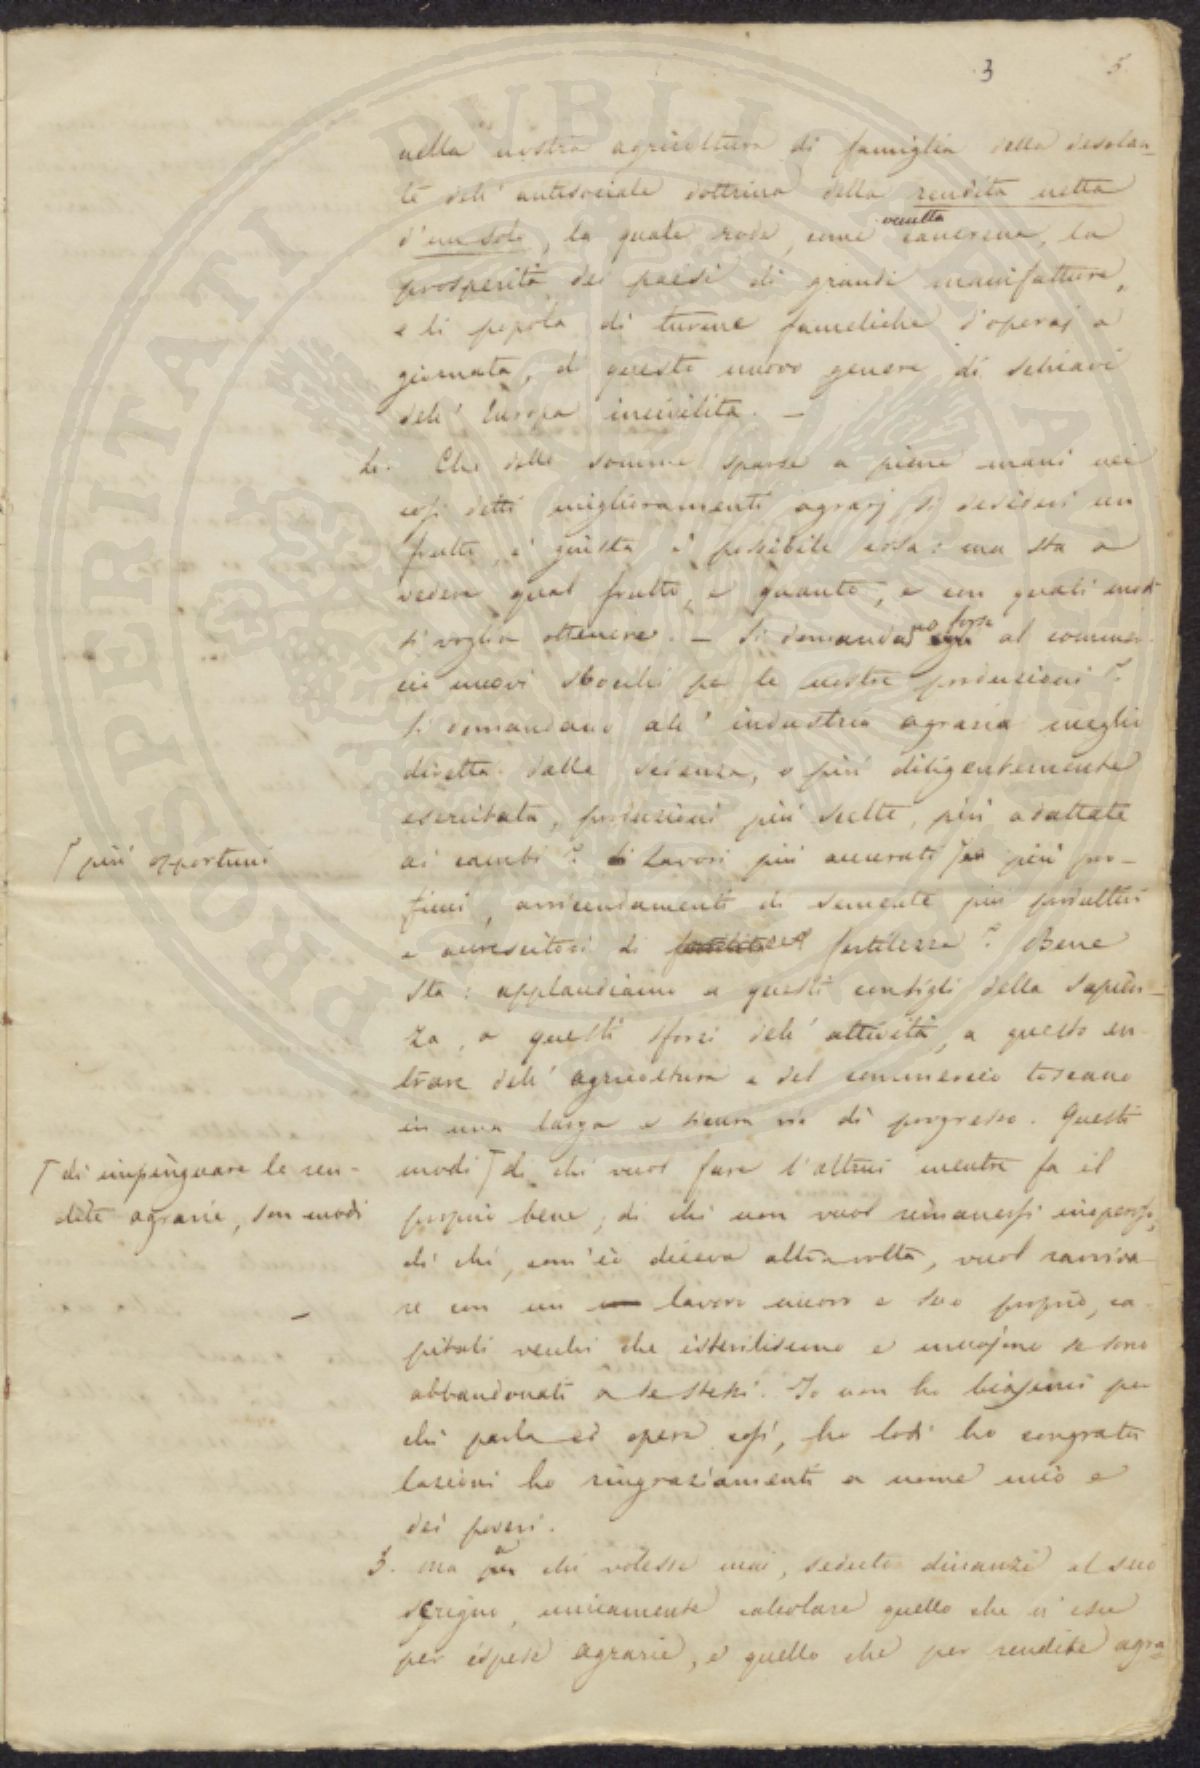 3 5
nella nostra agricoltura di famiglia della desolan-
te dell' antisociale dottrina della rendita netta
d'un solo, la quale rode, come cancrena, la
venetta
prosperità dei paesi di grandi manifatture,
e li popola di turme fameliche d'operaj a
giornata, di questo nuovo genere di schiavi
dell' Europa incivilita. —
2. Che delle somme sparse a piene mani nei
così detti miglioramenti agrarj si desideri un
frutto, è giusta è possibile cosa: ma sta a
vedere qual frutto, e quanto, e con quali modi
si voglia ottenere. — Si domandano forse al commer-
cio nuovi sbocchi per le nostre produzioni?
Si domandano all' industria agraria meglio
diretta dalla scienza, e più diligentemente
esercitata, produzioni più scelte, più adattate
ai cambi? Lavori più accurati ⌈ più pro-
⌈ più opportuni
ficui, avvicendamenti di semente più produttivi
e accrescitori di fertilezza? Bene
sta: applaudiamo a questi consigli della sapien-
za, a questi sforzi dell' attività, a questo en-
trare dell' agricoltura e del commercio toscano
in una larga e sicura via di progresso. Questi
modi ⌈ di chi vuol fare l'altrui mentre fa il
⌈ di impinguare le ren-
dite agrarie, son modi
proprio bene, di chi non vuol rimanersi inoperoso,
di chi, com' io diceva altra volta, vuol ravviva-
re con un lavoro nuovo e suo proprio, ca-
pitali vecchi che isteriliscono e muojono se sono
abbandonati a se stessi. Io non ho biasimi per
chi parla ed opera così, ho lodi ho congratu
lazioni ho ringraziamenti a nome mio e
dei poveri.
3. Ma a chi volesse mai, seduto dinanzi al suo
scrigno, unicamente calcolare quello che n' esce
per ispese agrarie, e quello che per rendite agra-
PROSPERITATI PVBLICAE AVGENDAE